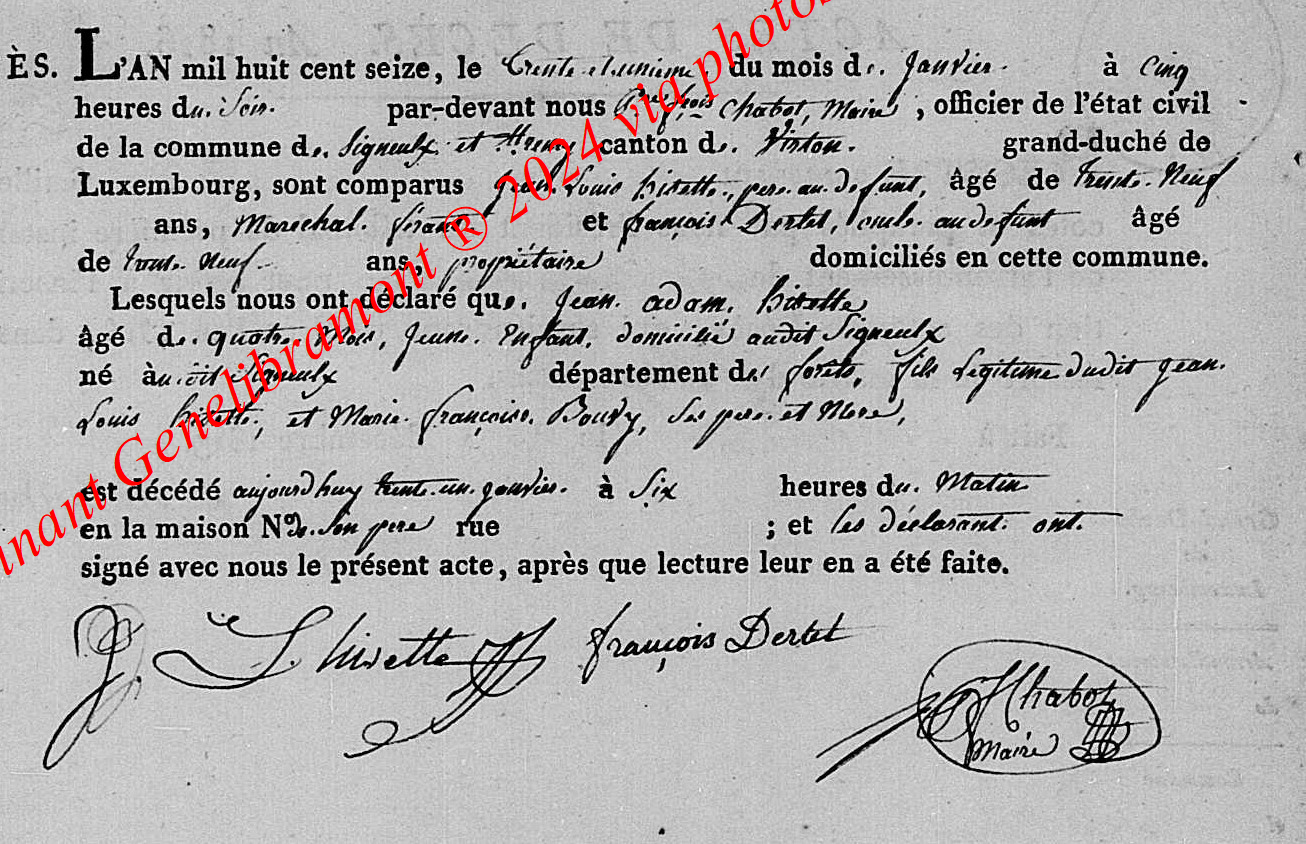 ÈS. L'AN mil huit cent seize, le trente et unieme, du mois de Janvier à Cinq
heures du Soir par-devant nous Chabot, Maire, officier de l'état civil
de la commune de Signeulx et canton de Virton. grand-duché de
Luxembourg, sont comparus Jean Louis hisette, pere au defunt, âgé de trente Neuf
ans, Marechal ferant et françois Dertet, oncle au defunt âgé
de trente Neuf ans, propriétaire domiciliés en cette commune.
Lesquels nous ont déclaré que Jean adam hisette
âgé de quatre Mois, Jeune Enfant, domicilié audit Signeulx
né audit Signeulx département de forêts, fils Legitime dudit Jean
Louis hisette, et Marie françoise Boudy, Ses pere et Mere,
est décédé aujourdhuy trente un janvier à Six heures du Matin
en la maison No de Son pere rue ; et les déclarant ont
signé avec nous le présent acte, après que lecture leur en a été faite.
J L hisette françois Dertet
Chabot
Maire
nant Genelibramont ® 2024 via photos